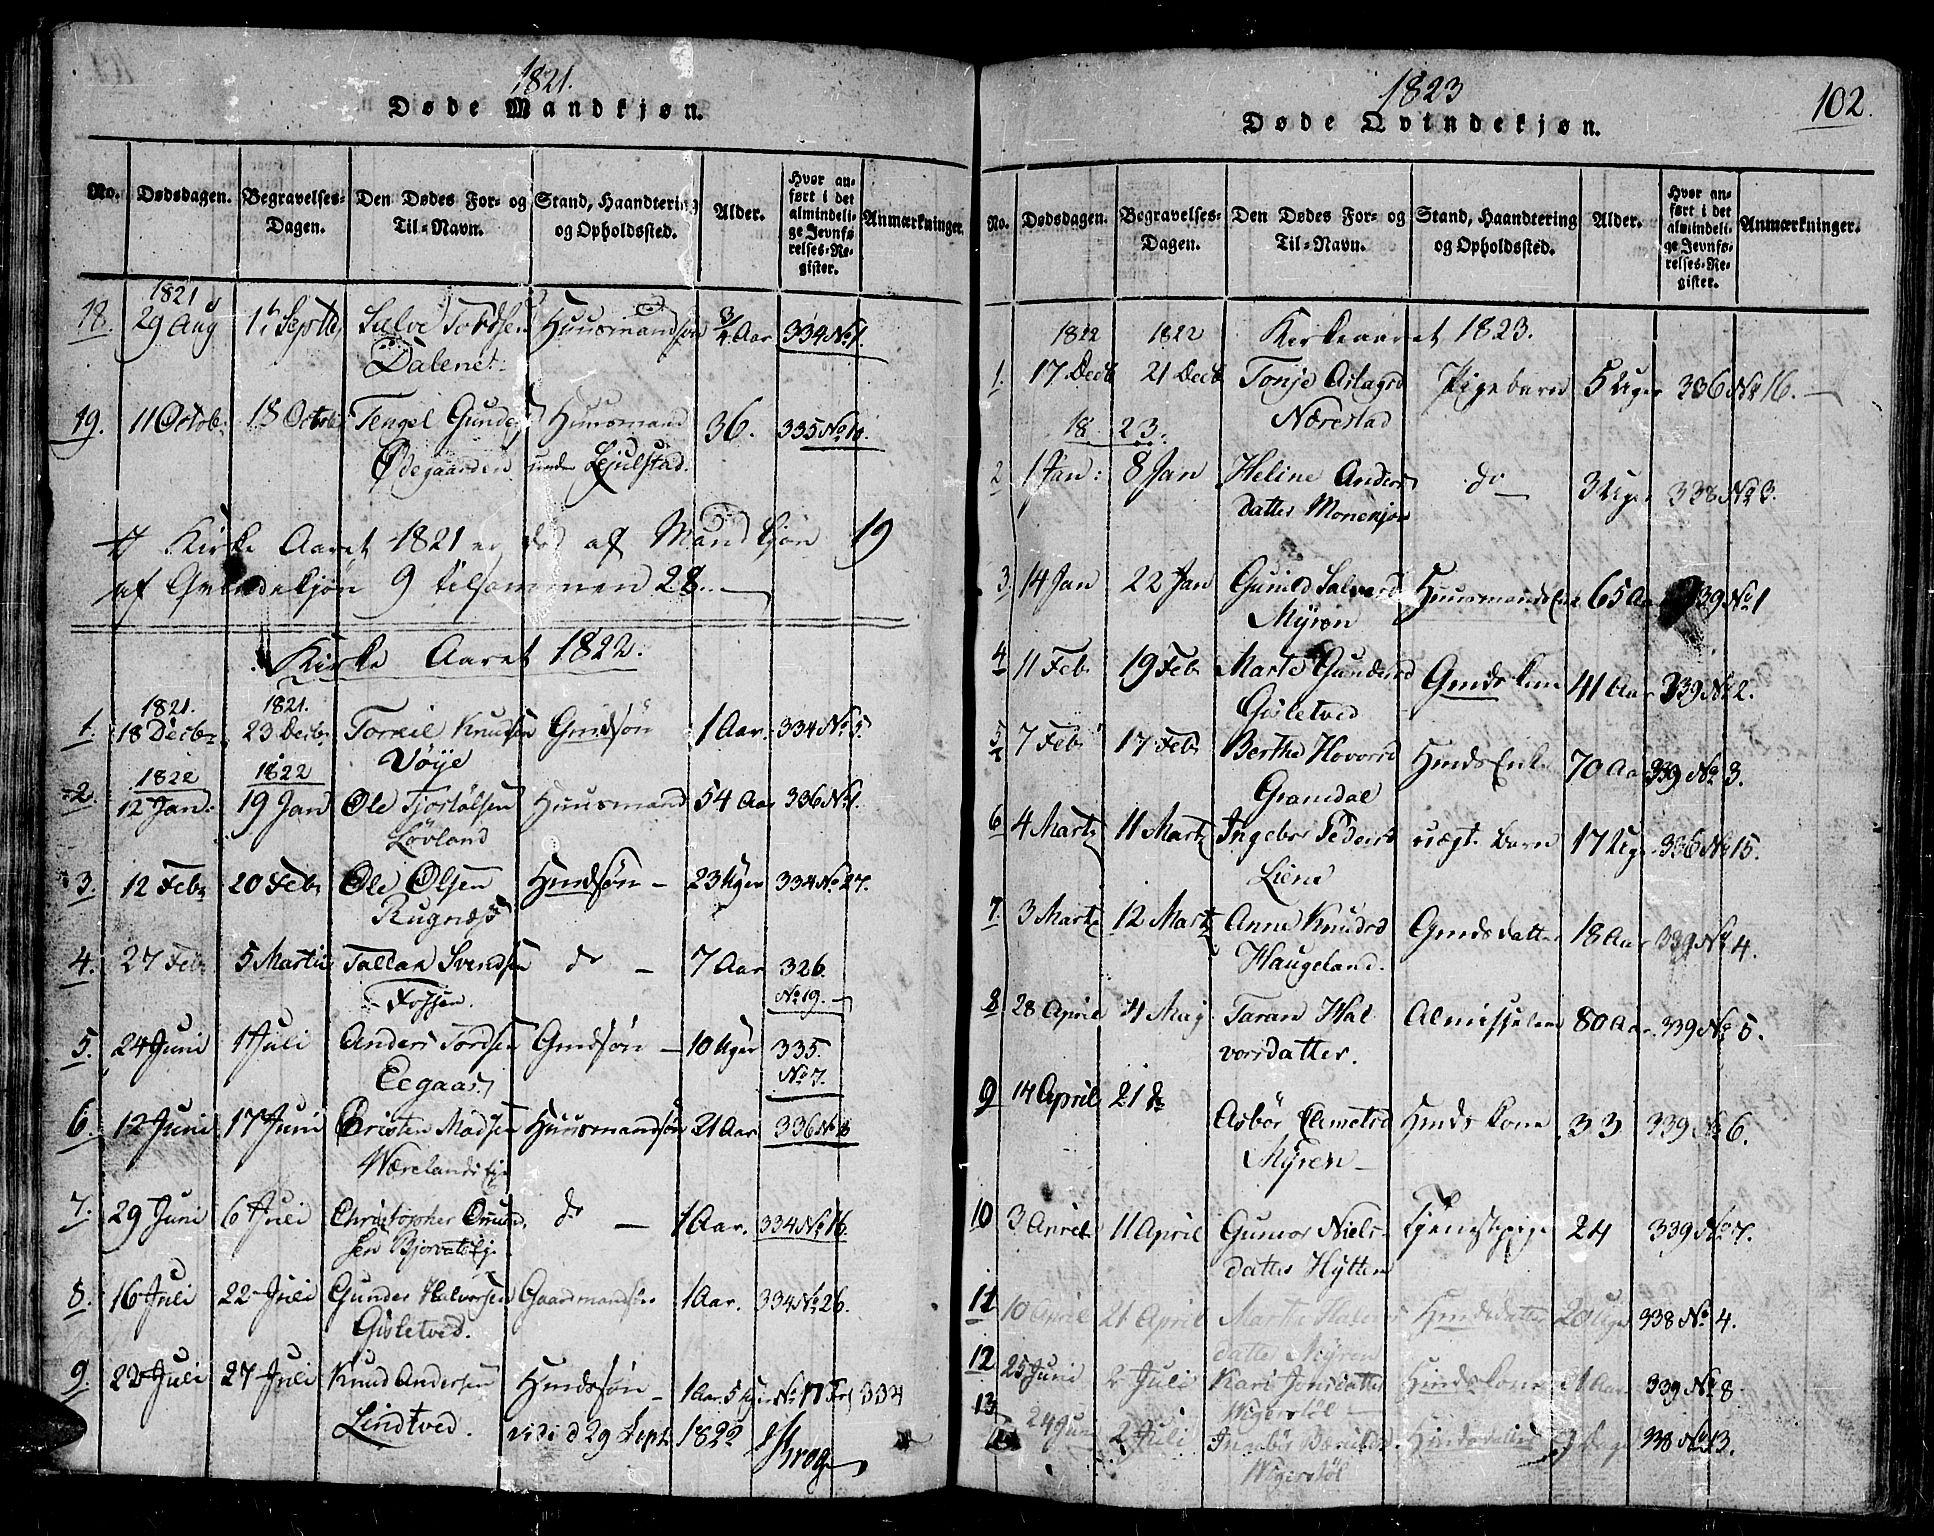 1821.
Døde Mandkjøn.
No. Dødsdagen. Begravelses-Dagen. Den Dødes For- og Til-Navn. Stand, Haandtering og Opholdssted. Alder. Hvor anført i det almindelige Jevnførelses-Register. Anmærkninger.
1821
18. 29 Aug 1 Septb Salve Tordsen Huusmandsøn 3/4 Aar 334 No 1.
Dalene
19. 11 Octob: 18 Octob Tengel Gunders Huusmand 36. 335 No 10.
Ødegaarden under Lejulstad.
I Kirke Aaret 1821 er død af Mandkjøn 19
af Qvindekjøn 9 tilsammen 28.
Kirke Aaret 1822.
1821. 1821.
1. 18 Decbr 23 Decbr Torkil Knudsen Gmdsøn 1 Aar. 334 No 5.
Vøÿe
1822 1822
2. 12 Jan: 19 Jan Ole Tjostolsen Huusmand 54 Aar 336 No 9.
Løvland
3. 12 Febr 20 Febr Ole Olsen Hmdsøn 23 Uger 334 No 27.
Rugnæs
4. 27 Febr 5 Martii Tallak Svendsen do 7 Aar 326.
Fossen. No 19.
5. 24 Juni 1 Juli Anders Tordsen Gmdsøn 10 Uger 335.
Eegaas No 7.
6. 12 Juni 17 Juni Christen Madsen Huusmandsøn 21 Aar 336 No 8
Wærelands Eje
7. 29 Juni 6 Juli Christopher Omund do 1 Aar. 334 No 16.
sen Bjorvats Ej.
8. 16 Juli 22 Juli Gunder Halvorsen Gaardmandsøn 1 Aar. 334 No 26.
Gisletved.
9. 22 Juli 27 Juli Knud Andersen Hmdsøn 1 Aar 5 Uger No 17 Fol 334
Lindtved. vidi d 29 Sept 1822 Krog
1823
102.
Døde Qvindekjøn.
No. Dødsdagen. Begravelses-Dagen. Den Dødes For- og Til-Navn. Stand, Haandtering og Opholdssted. Alder. Hvor anført i det almindelige Jevnførelses-Register. Anmærkninger.
1822 1822 Kirkeaaret 1823.
1. 17 Decb 21 Decb Tonje Aslagsd Pigebarn 5 Uger 336 No 16.
Nærestad
1823.
2 1 Jan: 8 Jan Heline Anders do 3 Uger 338 No 3.
datter Monekjær
3. 14 Jan 22 Jan Gunild Salvesd Huusmands Enke 65 Aar 339 No 1
Mÿren
4 11 Feb. 19 Feb. Marte Gundersd Gmds kone 41 Aar 339 No 2.
Gisletved
5 7 Feb. 17 Feb. Berthe Hovorsd Hmds Enke 70 Aar 339 No 3.
Gramdal
6 4 Martz 11 Martz Ingebor Pedersd uægt. barn 17 Uger 336 No 15.
Liene
7. 3 Martz 12 Martz Anne Knudsd Gmdsdatter 18 Aar 339 No 4.
Haugeland.
8 28 April 4 Maj Taran Hal Almisselem 80 Aar 339 No 5.
vorsdatter.
9 14 April 21 do
Asbør Clemetsd Hmds kone 33 339 No 6.
Mÿren
10 3 April 11 April Gunvor Niels- Tjenestepige 24 339 No 7.
datter Hÿtten
11 10 April 21 April Marthe Halvors Hmdsdatter 20 Uger 338 No 4.
datter Mÿren
12 25 Juni 2 Juli Kari Jensdatter Hmds kone 21 Aar. 339 No 8.
Wigerstøl
13 24 Juni 2 Juli Ingebør Hmdsdatter Dage 338 No 13.
Wigerstøl